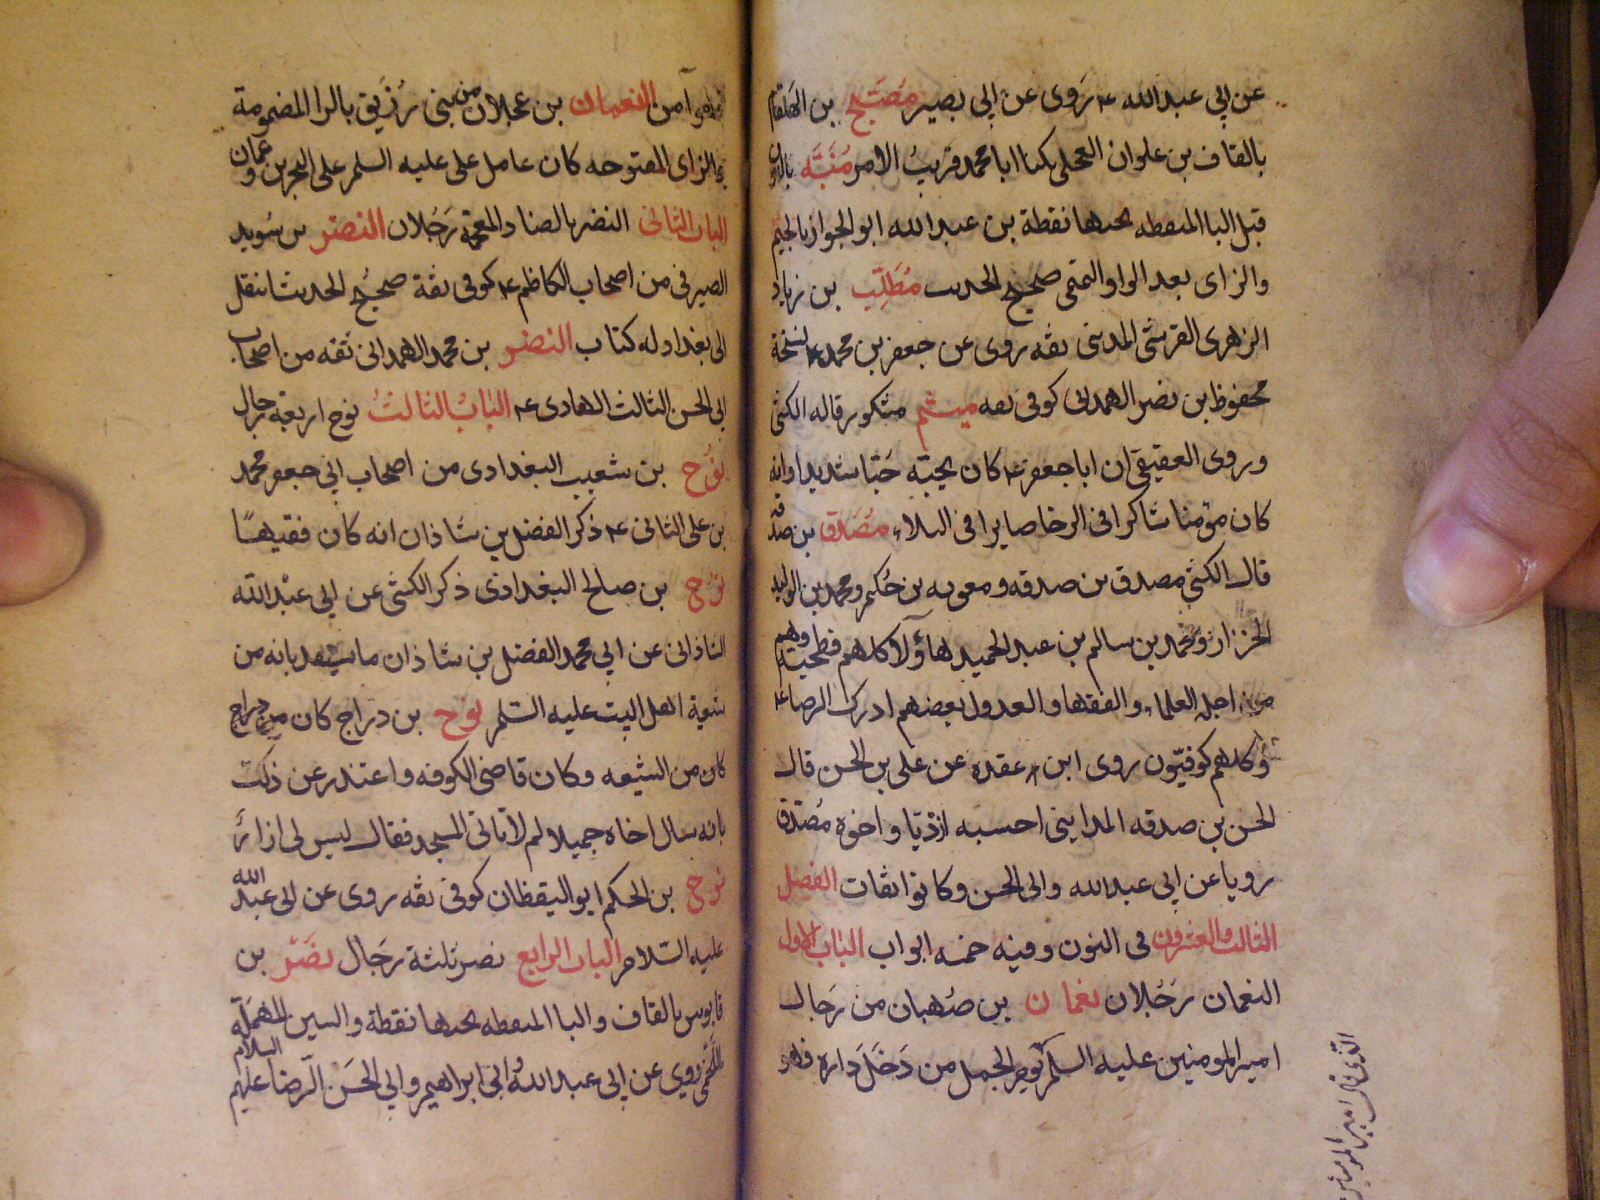 عن ابي عبدالله ع روى عن ابي بصير مصبح بن الهلقام
بالقاف بن علوان العجلي يكنا ابا محمد قريب الامر منبه بالنون
قبل البا المنقطه تحتها نقطة بن عبدالله ابو الجوازا بالجيم
والزاى بعد الواو التميمى صحيح الحديث مطلب بن زياد
الزهرى القرشى المدينى ثقه روى عن جعفر بن محمد ع نسخة
محفوظ بن نصر الهمداني كوفى ثقه ميثم مشكور قاله الكشى
وروى العقيقى ان ابا جعفر ع كان يحبه حبا شديدا وانه
كان مؤمنا شاكرا فى الرخا صابرا فى البلاء مصدق بن صدقه
قال الكشى مصدق بن صدقه ومعويه بن حكيم ومحمد بن الوليد
الخزاز ومحمد بن سالم بن عبد الحميد هاؤلآ كلهم فطحيه وهم
من اجله العلماء والفقها والعدول بعضهم ادرك الرضا ع
وكلهم كوفيون روى ابن عقده عن على بن الحسن قال
الحسن بن صدقه المدايني احسبه ازديا واخوه مصدق
رويا عن ابي عبدالله والى الحسن وكانوا ثقات الفصل
الثالث والعشرون فى النون وفيه خمسه ابواب الباب الاول
النعمان رجلان نعمان بن صهبان من رجال
امير المومنين عليه السلم يوم الجمل من دخل داره فهو
الذى قال امير المومنين
آمن النعمان بن عجلان من بنى زريق بالرا المضمومة
والزاى المفتوحه كان عامل على عليه السلم على البحرين وعمان
الباب الثانى النضر بالضاد المعجمة رجلان النضر بن سويد
الصيرفى من اصحاب الكاظم ع كوفى ثقة صحيح الحديث انتقل
الى بغداد له كتاب النضر بن محمد الهمدانى ثقه من اصحاب
ابي الحسن الثالث الهادى ع الباب الثالث نوح اربعة رجال
نوح بن شعيب البغدادى من اصحاب ابي جعفر محمد
بن على الثانى ع ذكر الفضل بن شاذان انه كان فقيها
نوح بن صالح البغدادى ذكر الكشى عن ابي عبدالله
الشاذانى عن ابي محمد الفضل بن شاذان ما يشهد بانه من
شيعة اهل البيت عليه السلم نوح بن دراج كان
كان من الشيعه وكان قاضى الكوفه واعتذر عن ذلك
بانه سال اخاه جميلا لم لا تاتى المسجد فقال ليس لى ازار
نوح بن الحكم ابو اليقظان كوفى ثقه روى عن ابى عبدالله
عليه السلام الباب الرابع نصر ثلثة رجال نصر بن
قابوس بالقاف والبا المنقطه تحتها نقطة والسين المهملة
اللخمى روي عن ابي عبدالله وابى ابراهيم وابي الحسن الرضا عليهم السلام